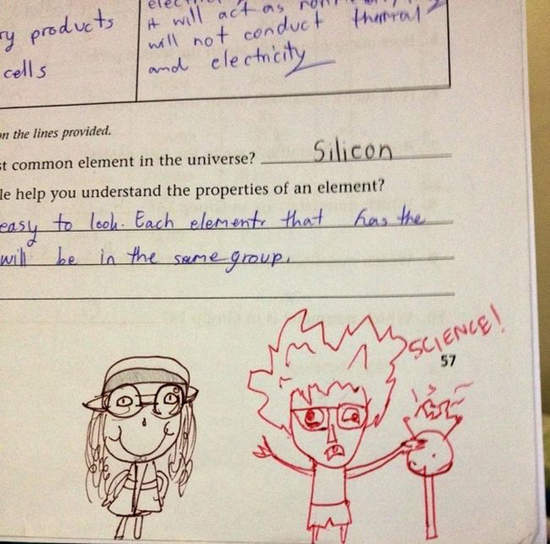 ry products
cells
it will act as non
will not conduct thermal
and electricity
n the lines provided.
st common element in the universe? Silicon
le help you understand the properties of an element?
easy to look. Each element that has the
will be in the same group.
SCIENCE!
57